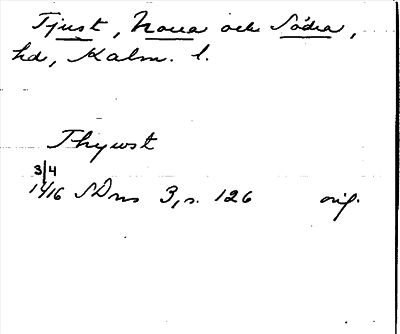 Tjust, Norra och Södra,
hd, Kalm. l.
Thywst
3/4
1416 SDns 3, s. 126 orig.